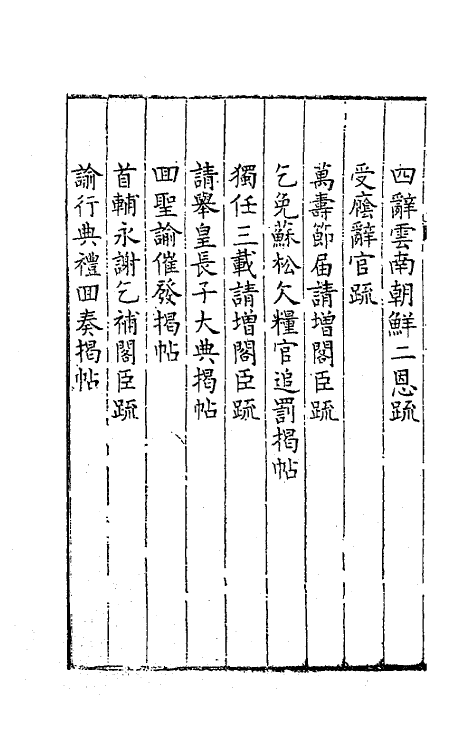 四辭雲南朝鮮二恩疏
受廕辭官疏
萬壽節届請增閣臣疏
乞免蘇松欠糧官追罰揭帖
獨任三載請增閣臣疏
請舉皇長子大典揭帖
回聖諭催發揭帖
首輔永謝乞補閣臣疏
諭行典禮回奏揭帖